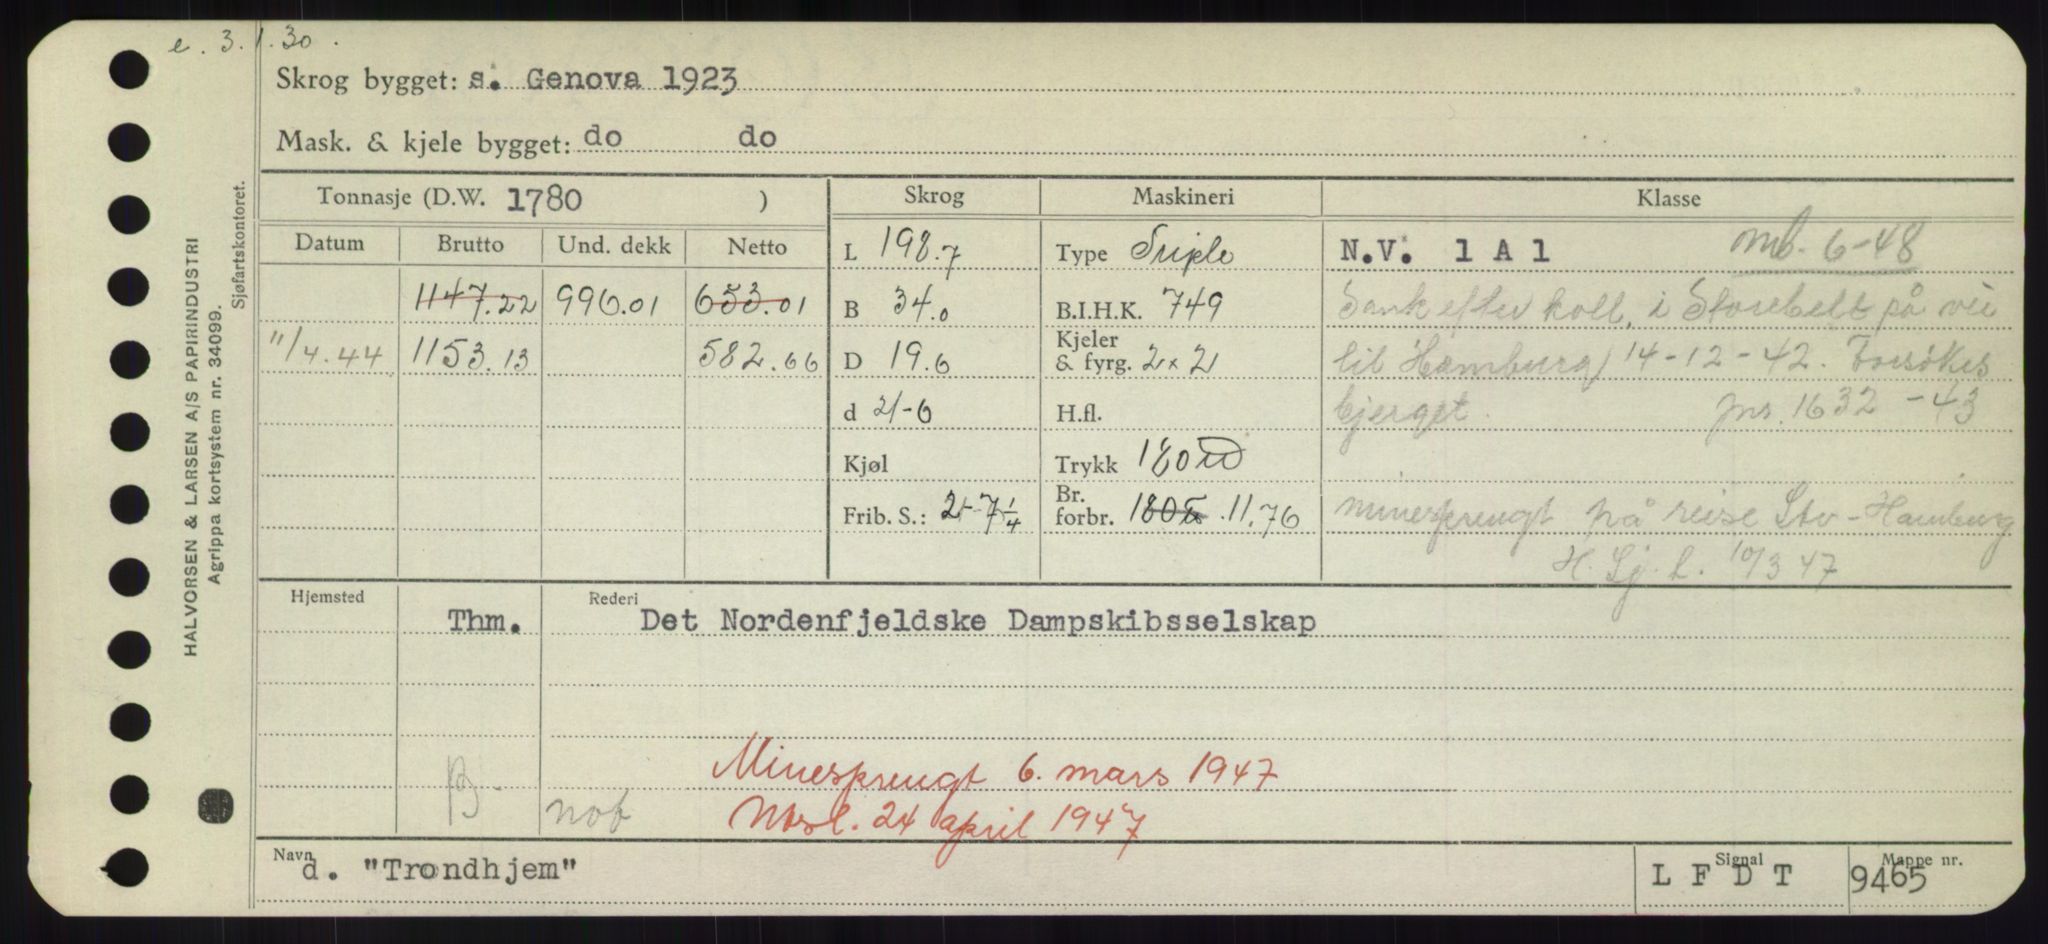 e. 3.1.30.
Skrog bygget: s. Genova 1923
Mask. & kjele bygget: do do
Tonnasje (D.W. 1780 )
Skrog
Maskineri
Klasse
Datum Brutto Und. dekk Netto
1147.22 996.01 653.01
"/4.44 1153.13 582.66
L 198.7
B 34.0
D 19.6
d 21-6
Kjøl
Frib. S.: 2-7 1/4
Type Triple
B.I.H.K. 749
Kjeler
& fyrg. 2x2
H.fl.
Trykk 180
Br.
forbr. 11.76
N.V. 1 A 1 mb. 6-48
Sank efter koll. i Storebelt på vei
til Hamburg 14-12-42. Forsøkes
bjerget. jnr. 1632-43
minesprengt på reise Stv-Hamburg
H. Sj. t. 10/3 47
Hjemsted Rederi
Thm. Det Nordenfjeldske Dampskibsselskap
Minesprengt 6. mars 1947
B. nob Ntsl. 24 april 1947
Navn Signal Mappe nr.
d. "Trondhjem" L F D T 9465
HALVORSEN & LARSEN A/S PAPIRINDUSTRI
Agrippa kortsystem nr. 34099.
Sjøfartskontoret.